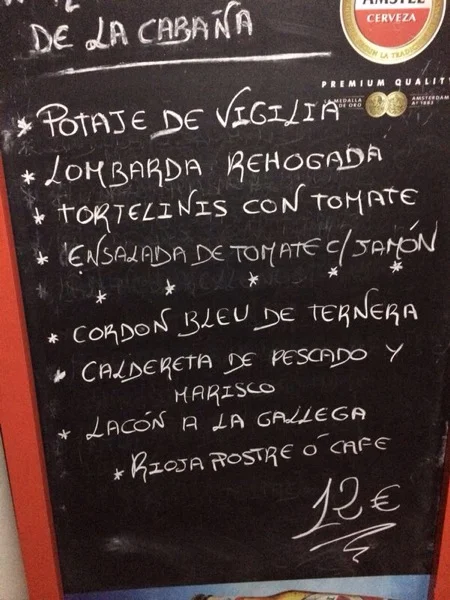 DE LA CABAÑA
AMSTEL
CERVEZA
PREMIUM QUALITY
MEDALLA DE ORO
AMSTERDAM Aº 1883
* POTAJE DE VIGILIA
* LOMBARDA REHOGADA
* TORTELINIS CON TOMATE
* ENSALADA DE TOMATE C/ JAMÓN
* * * * *
* CORDON BLEU DE TERNERA
* CALDERETA DE PESCADO Y
MARISCO
* LACÓN A LA GALLEGA
* RIOJA POSTRE Ó CAFE
12 €